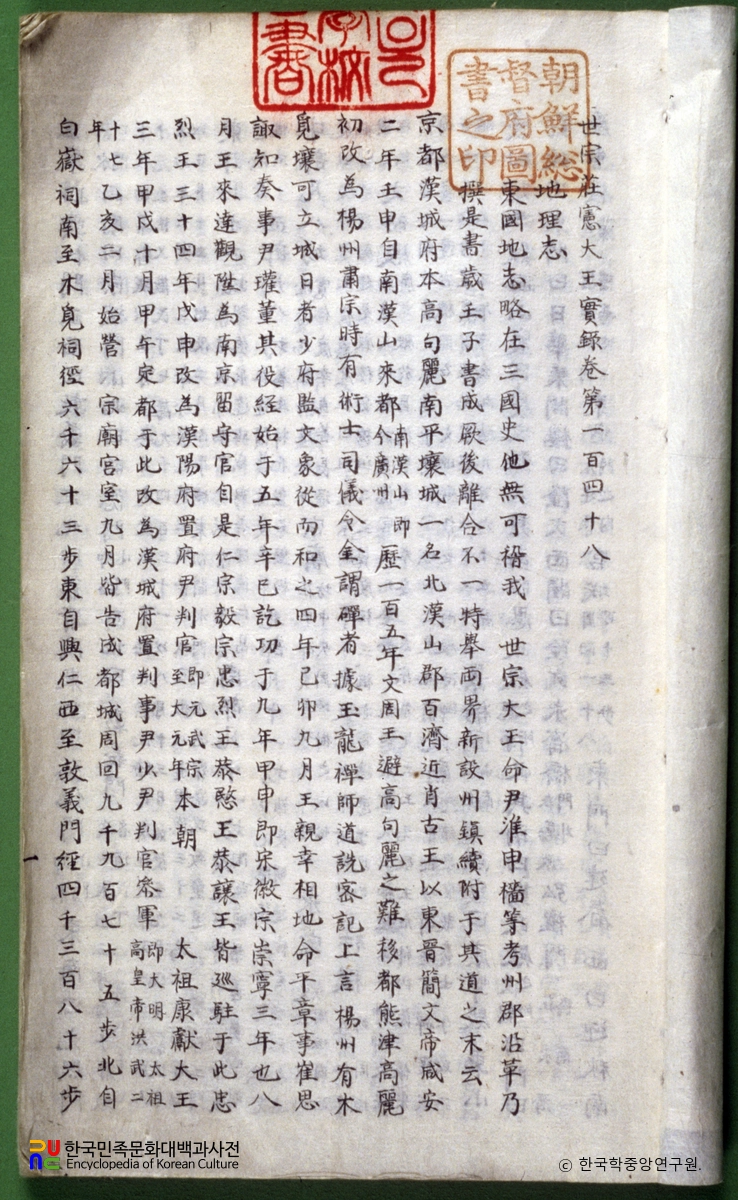 朝鮮総
督府圖
書之印
世宗莊憲大王實錄卷第一百四十八
地理志
東國地志略在三國史他無可稽我 世宗大王命尹淮申檣等考州郡沿革乃
撰是書歲壬子書成厥後離合不一特舉兩界新設州鎮續附于其道之末云
京都漢城府本高句麗南平壤城一名北漢山郡百濟近肖古王以東晉簡文帝咸安
二年壬申自南漢山來都南漢山即今廣州歷一百五年文周王避高句麗之難移都熊津高麗
初改為楊州肅宗時有術士司儀令金謂磾者據玉龍禪師道詵密記上言楊州有木
覓壤可立城日者少府監文象從而和之四年己卯九月王親幸相地命平章事崔思
諏知奏事尹瓘董其役經始于五年辛巳訖功于九年甲申即宋徽宗崇寧三年也八
月王來達觀陞為南京留守官自是仁宗毅宗忠烈王恭愍王恭讓王皆巡駐于此忠
烈王三十四年戊申改為漢陽府置府尹判官即元武宗至大元年本朝 太祖康獻大王
三年甲戌十月甲午定都于此改為漢城府置判事尹少尹判官叅軍即大明 太祖高皇帝洪武二
十七年乙亥二月始營 宗廟宮室九月皆告成都城周回九千九百七十五步北自
白嶽祠南至木覓祠徑六千六十三步東自興仁西至敦義門徑四千三百八十六步
한국민족문화대백과사전
Encyclopedia of Korean Culture
© 한국학중앙연구원.